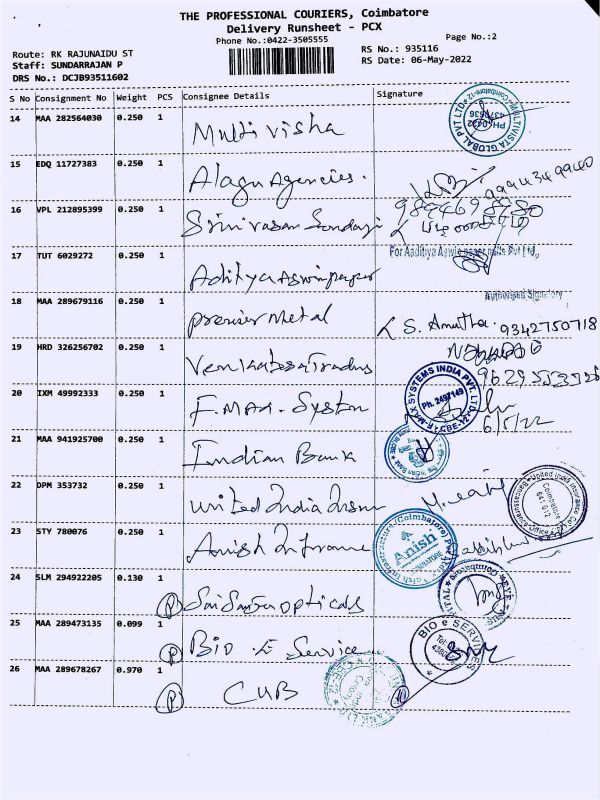 THE PROFESSIONAL COURIERS, Coimbatore
Delivery Runsheet - PCX
Phone No.:0422-3505555
Page No.:2
Route: RK RAJUNAIDU ST
Staff: SUNDARRAJAN P
DRS No.: DCJB93511602
RS No.: 935116
RS Date: 06-May-2022
S No Consignment No Weight PCS Consignee Details Signature
14 MAA 282564030 0.250 1 Multivisha
MULTIVISTA GLOBAL PVT LTD
Coimbatore-12
PH:0422
4378636
15 EDQ 11727383 0.250 1 Alagu Agencies.
9994349940
16 VPL 212895399 0.250 1 Srinivasan Sundaji
9844698980
17 TUT 6029272 0.250 1 Aditya Aswin paper
For Aaditya Aswin paper mills Pvt Ltd,
Authorised Signatory
18 MAA 289679116 0.250 1 premier Metal
S. Amutha 9342750718
19 HRD 326256702 0.250 1 Venkatesa Traders
20 IXM 49992333 0.250 1 F. MAX. System
F-MAX SYSTEMS INDIA PVT. LTD.
Ph. 2497149
CBE-12
6/5/22
21 MAA 941925700 0.250 1 Indian Bank
22 DPM 353732 0.250 1 United India Insur
United India Insurance Co
Coimbatore
641 012
23 STY 780076 0.250 1 Anish Infrome
Anish Infrastructure (Coimbatore) P
Anish
24 SLM 294922205 0.130 1 (P) Sai Sankar opticals
25 MAA 289473135 0.099 1 (P) BIO .E Service
BIO e SERVICES
26 MAA 289678267 0.970 1 (P) CUB